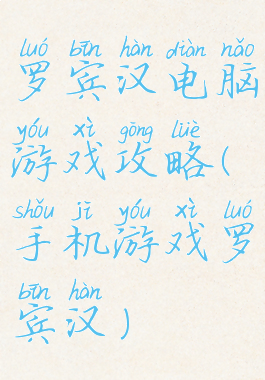 luó bīn hàn diàn nǎo
罗宾汉电脑
yóu xì gōng lüè
游戏攻略(
shǒu jī yóu xì luó
手机游戏罗
bīn hàn
宾汉)